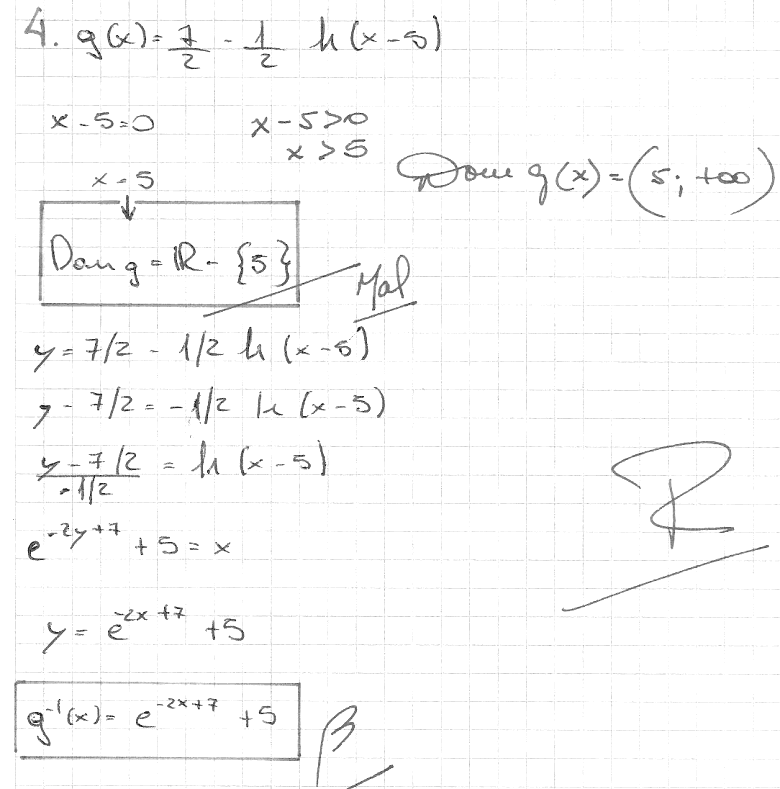 4. g(x) = 7/2 - 1/2 ln(x-5)
x - 5 = 0
x - 5 > 0
x = 5
x > 5
Dom g(x) = (5; +∞)
Dom g = ℝ - {5}
Mal
y = 7/2 - 1/2 ln (x-5)
y - 7/2 = -1/2 ln (x-5)
(y - 7/2)/(-1/2) = ln (x-5)
e^(-2y+7) + 5 = x
y = e^(-2x+7) + 5
g⁻¹(x) = e^(-2x+7) + 5
B
R